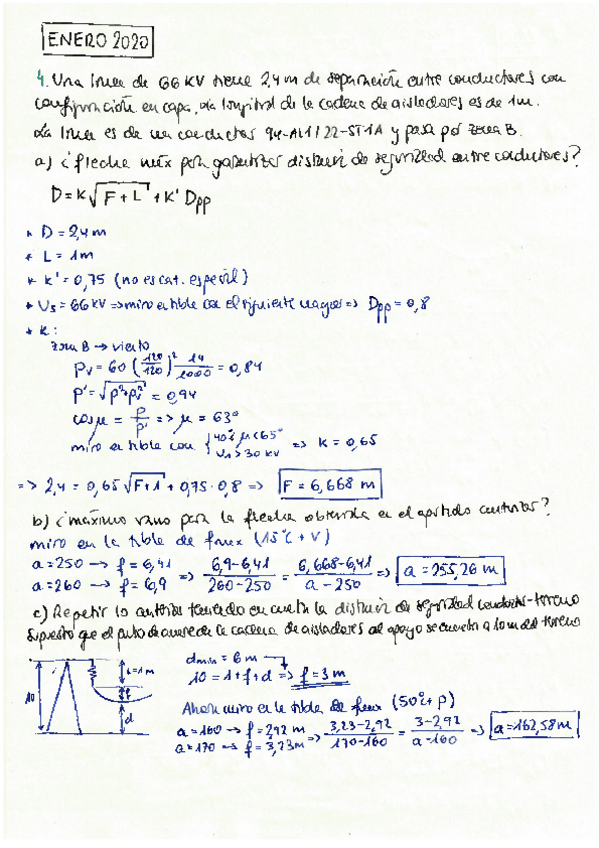 ENERO 2020
4. Una línea de 66 KV tiene 2,4 m de separación entre conductores con
configuración en capa, la longitud de la cadena de aisladores es de 1m.
La línea es de un conductor 94-AL1/22-ST1A y pasa por zona B.
a) ¿flecha máx para garantizar distancia de seguridad entre conductores?
D = K√F+L + K' Dpp
* D = 2,4 m
* L = 1m
* K' = 0,75 (no es cat. especial)
* Us = 66 KV => miro en tabla con el siguiente => Dpp = 0,8
* K:
Zona B → viento
Pv = 60 (120/120)² 14/1000 = 0,84
P' = √p²+pv² = 0,94
cos μ = P/P' => μ = 63º
miro en tabla con { 40º< μ < 65º Un > 30 KV => K = 0,65
=> 2,4 = 0,65 √F+1 + 0,75 · 0,8 => F = 6,668 m
b) ¿máximo vano para la flecha obtenida en el apartado anterior?
miro en la tabla de fmax (15ºC + V)
a = 250 → f = 6,41
a = 260 → f = 6,9 => 6,9-6,41/260-250 = 6,668-6,41/a-250 => a = 255,26 m
c) Repetir lo anterior teniendo en cuenta la distancia de seguridad conductor-terreno
supuesto que el punto de amarre de la cadena de aisladores al apoyo se encuentra a 10m del terreno
10 L=1m f d
dmin = 6 m
10 = 1 + f + d => f = 3 m
Ahora miro en la tabla de fmax (50ºC + P)
a = 160 → f = 2,92 m
a = 170 → f = 3,23m => 3,23-2,92/170-160 = 3-2,92/a-160 => a = 162,58 m